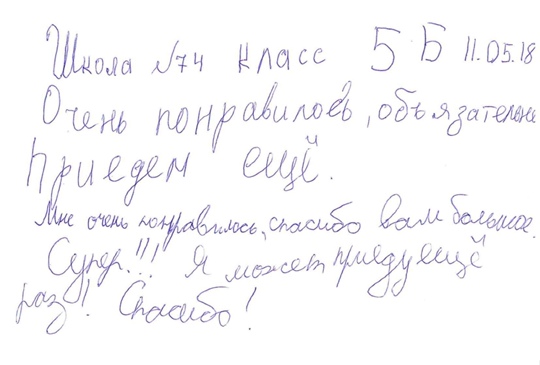 Школа №74 класс 5 Б 11.05.18
Очень понравилось, объязательно
Приедем ещё.
Мне очень понравилось, спасибо вам большое.
Супер!!! Я может приеду ещё
раз! Спасибо!